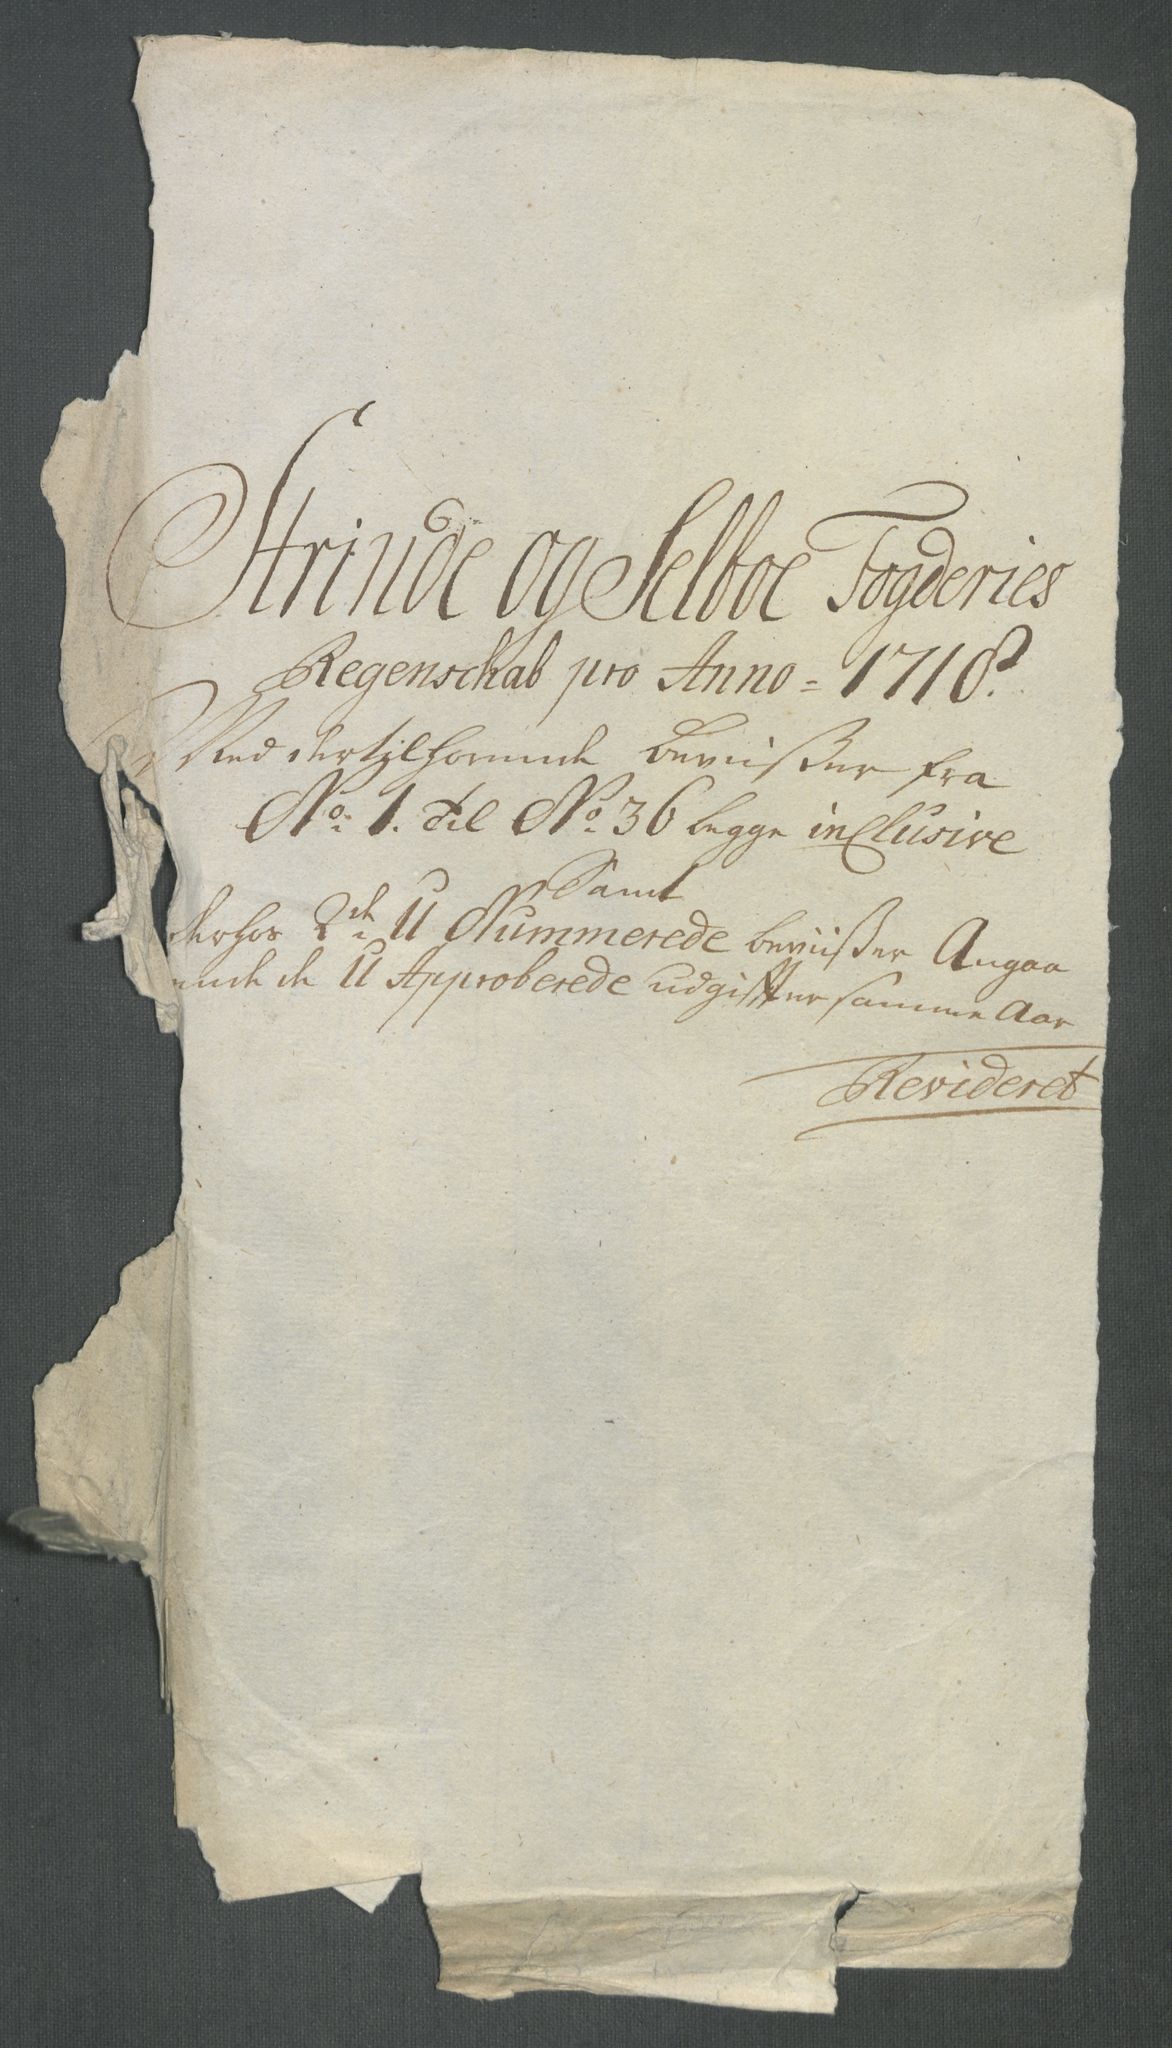 Strinde og Selboe Fogderies
Regenschab pro Anno = 1710.
Med dertilhørende beviißer fra
No: 1. til No: 36 begge inclusive
Samt
derhos 2de U Nummerede beviißer Angaa
ende de U Approberede udgiffter samme Aar
Revideret